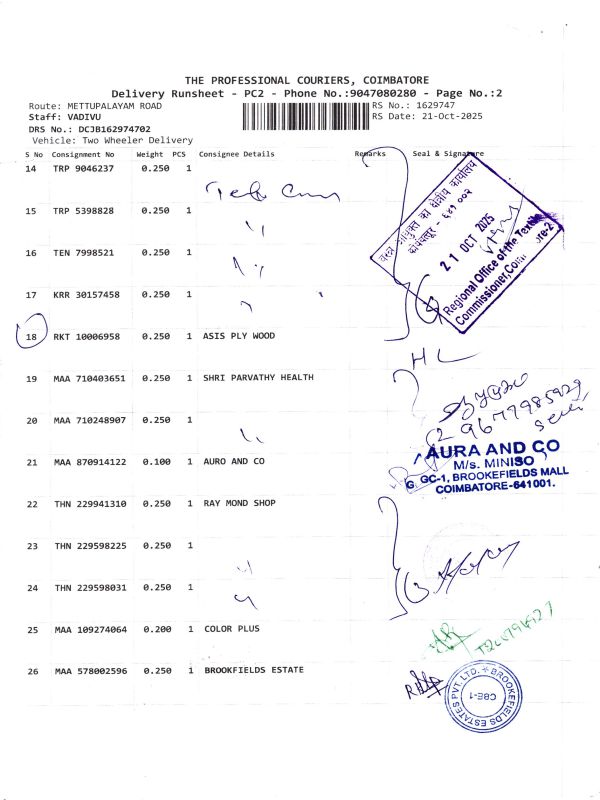 THE PROFESSIONAL COURIERS, COIMBATORE
Delivery Runsheet - PC2 - Phone No.:9047080280 - Page No.:2
Route: METTUPALAYAM ROAD
RS No.: 1629747
Staff: VADIVU
RS Date: 21-Oct-2025
DRS No.: DCJB162974702
Vehicle: Two Wheeler Delivery
S No Consignment No Weight PCS Consignee Details Remarks Seal & Signature
14 TRP 9046237 0.250 1
15 TRP 5398828 0.250 1
16 TEN 7998521 0.250 1
17 KRR 30157458 0.250 1
18 RKT 10006958 0.250 1 ASIS PLY WOOD
19 MAA 710403651 0.250 1 SHRI PARVATHY HEALTH
20 MAA 710248907 0.250 1
21 MAA 870914122 0.100 1 AURO AND CO
22 THN 229941310 0.250 1 RAY MOND SHOP
23 THN 229598225 0.250 1
24 THN 229598031 0.250 1
25 MAA 109274064 0.200 1 COLOR PLUS
26 MAA 578002596 0.250 1 BROOKFIELDS ESTATE
वस्त्र आयुक्त का क्षेत्रीय कार्यालय
कोयंबत्तूर - ६४१ ००२
21 OCT 2025
Regional Office of the Textile
Commissioner, Coimbatore-2
HL
9677985929
AURA AND CO
M/s. MINISO
G. GC-1, BROOKEFIELDS MALL
COIMBATORE-641001.
BROOKEFIELDS ESTATES PVT. LTD.
CBE-1